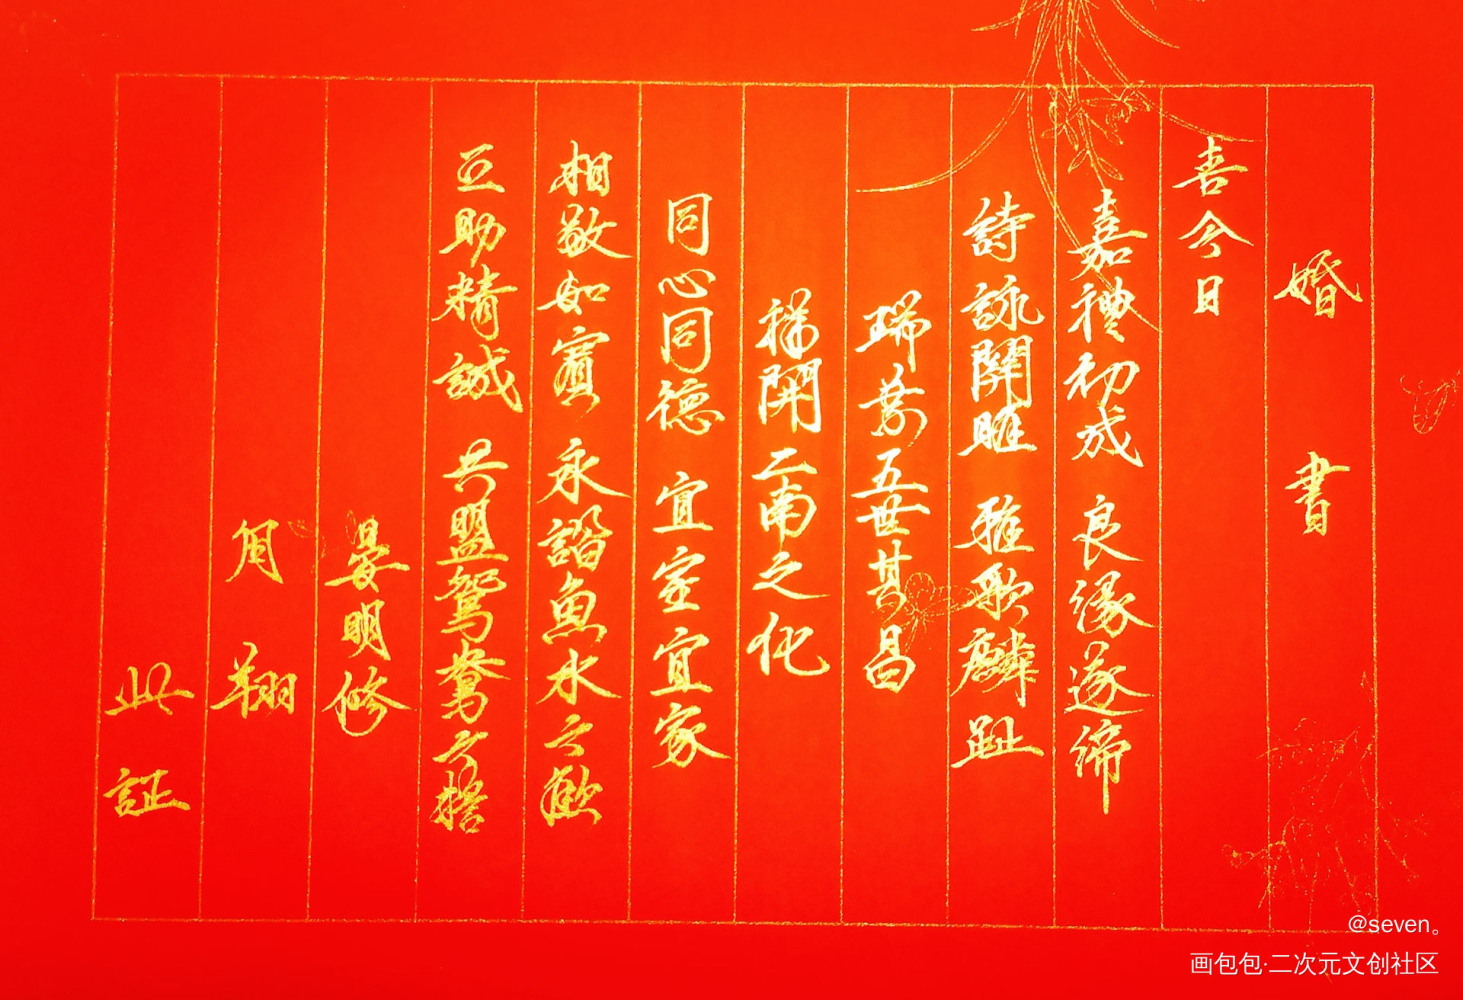 婚書
喜今日
嘉禮初成 良緣遂締
詩詠關雎 雅歌麟趾
瑞葉五世其昌
祥開二南之化
同心同德 宜室宜家
相敬如賓 永諧魚水之歡
互助精誠 共盟鴛鴦之誓
晏明修
月翔
此証
@seven。
画包包·二次元文创社区